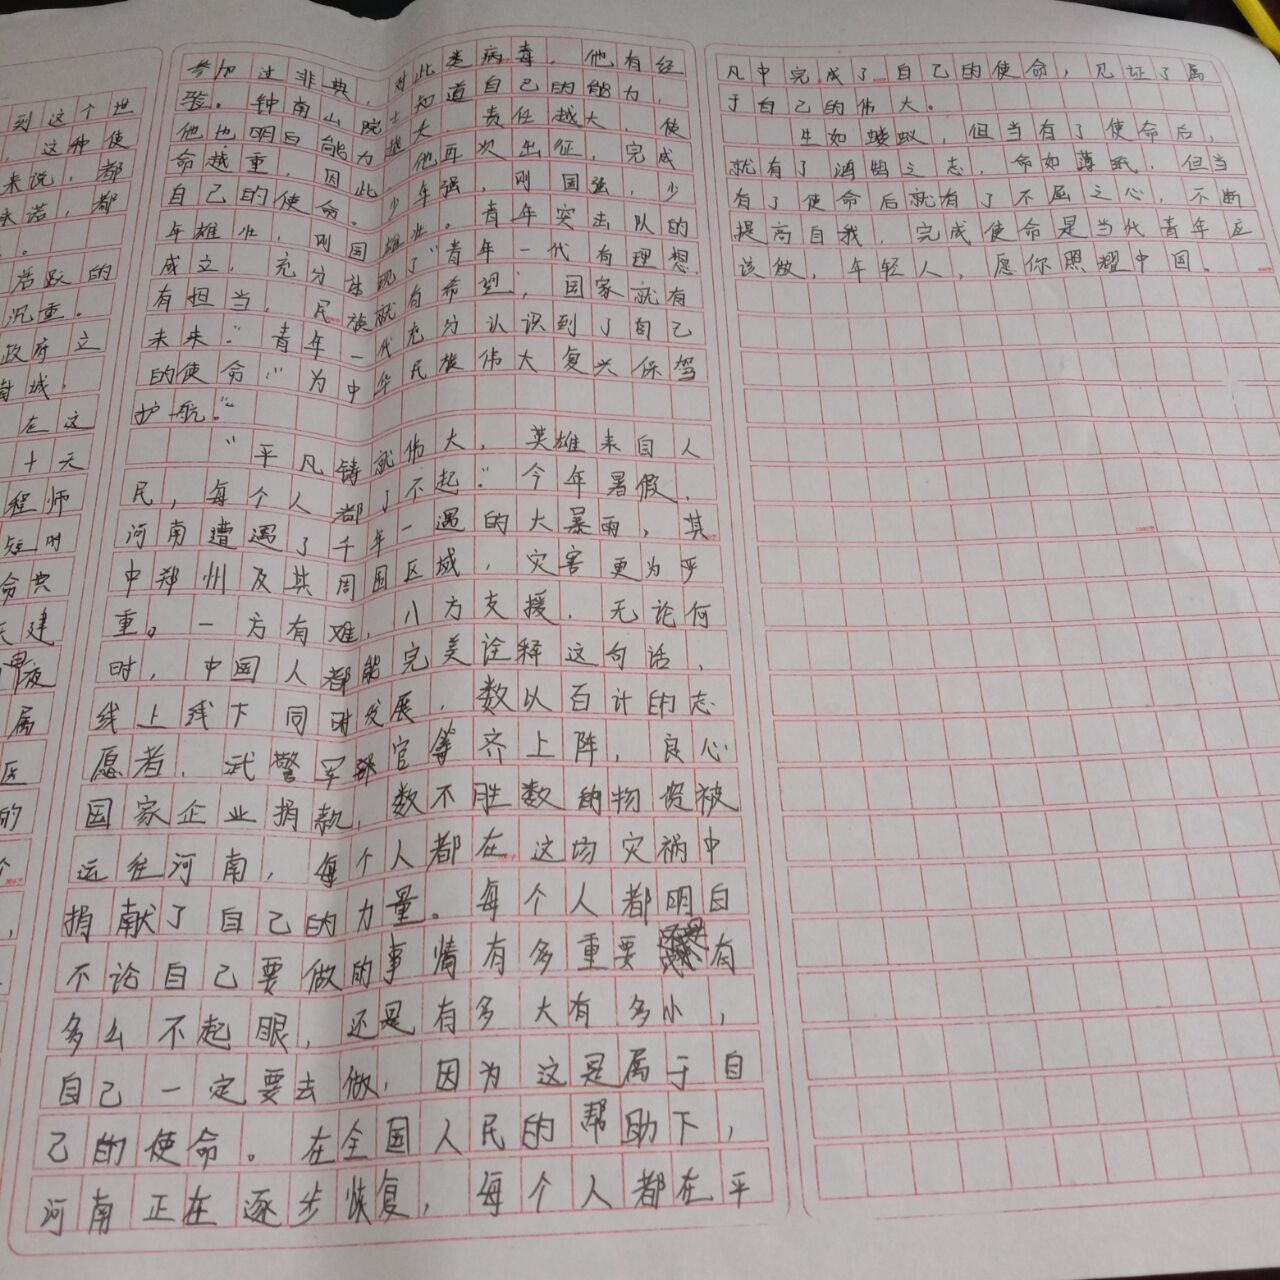 到这个世
，这种使
来说，都
承诺，都
。
活跃的
沉重。
政府立
封城，
在这
十天
程师
短时
命共
天建
夜
属
区
的
个
参加过非典，对此类病毒，他有经
验。钟南山院士知道自己的能力，
他也明白能力越大，责任越大，使
命越重，因此，他再次出征，完成
自己的使命。少年强，则国强，少
年雄壮，则国雄壮。青年突击队的
成立，充分体现了"青年一代有理想
有担当，民族就有希望，国家就有
未来。"青年一代充分认识到了自己
的使命："为中华民族伟大复兴保驾
护航。"
"平凡铸就伟大，英雄来自人
民，每个人都了不起。"今年暑假，
河南遭遇了千年一遇的大暴雨，其
中郑州及其周围区域，灾害更为严
重。一方有难，八方支援，无论何
时，中国人都能完美诠释这句话，
线上线下同时发展，数以百计的志
愿者，武警军官等齐上阵，良心
国家企业捐款，数不胜数的物资被
运往河南，每个人都在这场灾祸中
捐献了自己的力量。每个人都明白
不论自己要做的事情有多重要有
多么不起眼，还是有多大有多小，
自己一定要去做，因为这是属于自
己的使命。在全国人民的帮助下，
河南正在逐步恢复，每个人都在平
凡中完成了自己的使命，见证了属
于自己的伟大。
生如蝼蚁，但当有了使命后，
就有了鸿鹄之志，命如薄纸，但当
有了使命后就有了不屈之心，不断
提高自我，完成使命是当代青年应
该做，年轻人，愿你照耀中国。